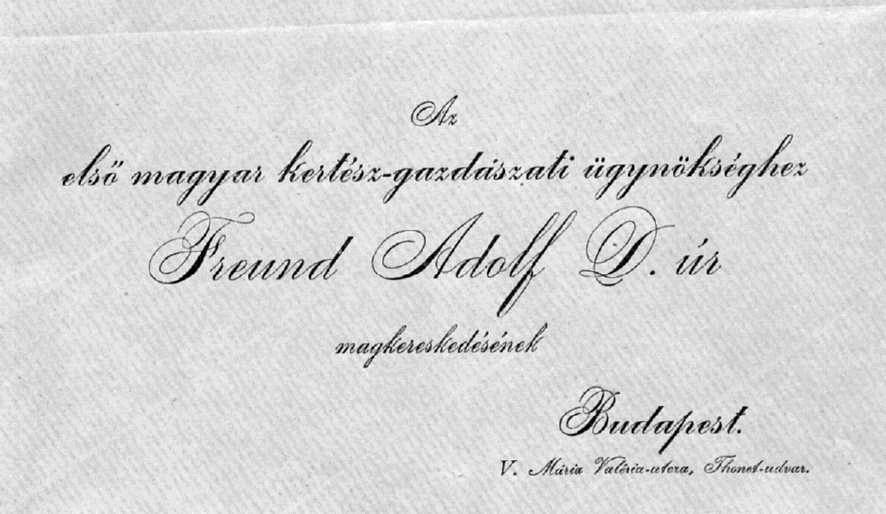 Az
első magyar kertész-gazdászati ügynökséghez
Freund Adolf D. úr
magkereskedésének
Budapest.
V. Mária Valéria-utcza, Thonet-udvar.